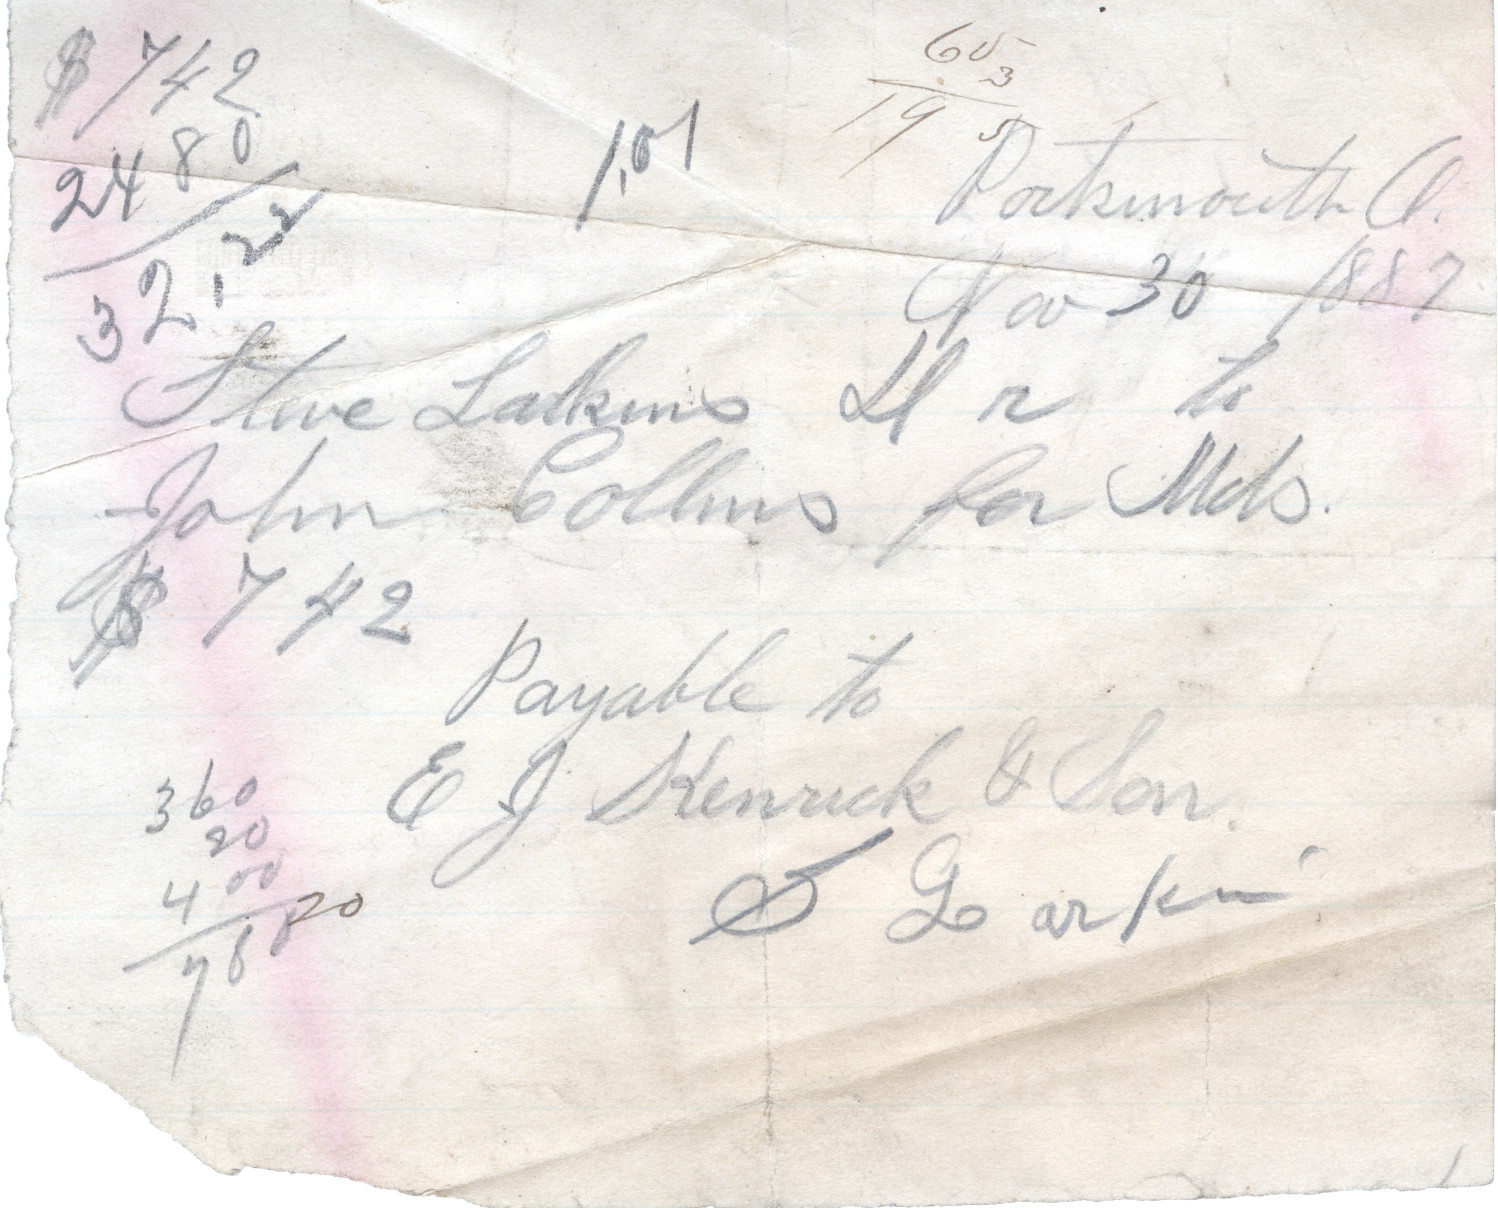 $ 742
24 80
32,22
1,01
65
3
19 5
Portsmouth O.
Nov 30 1887
Steve Larkins Dr to
John Collins for Mds.
$ 742
Payable to
E J Kenrick & Son.
S Larkin
360
20
400
20